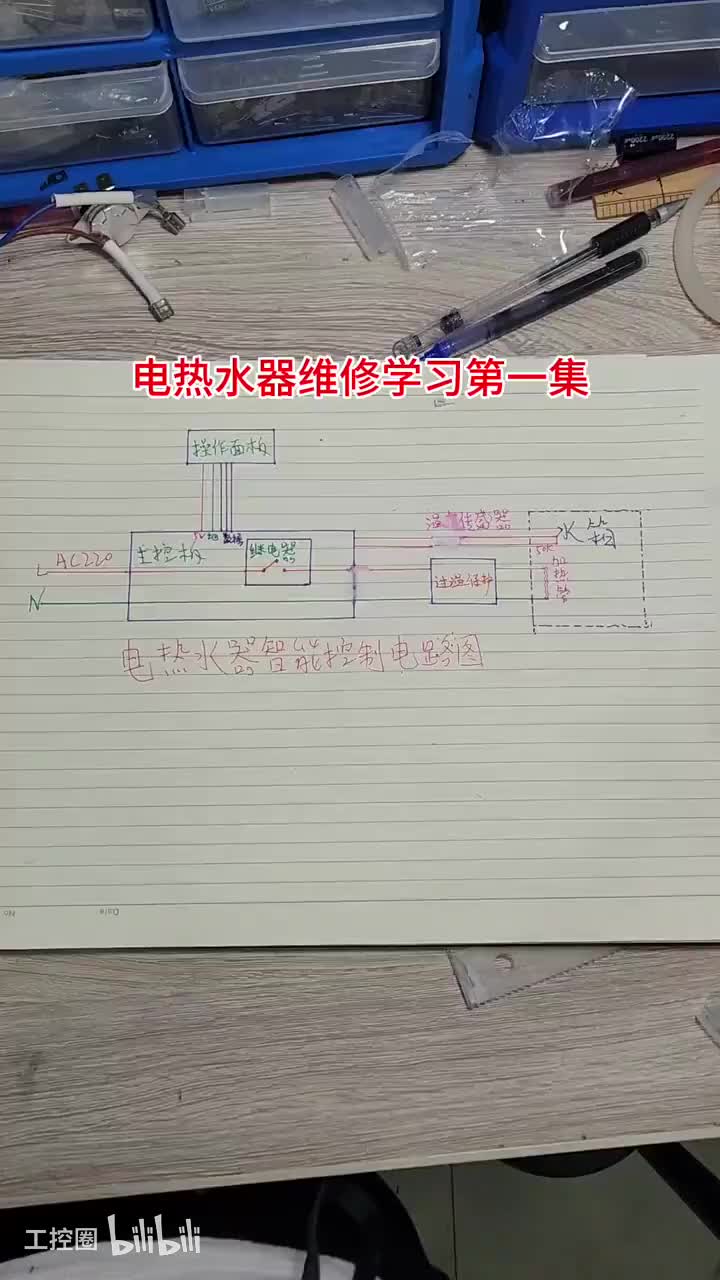 电热水器维修学习第一集
操作面板
5V 地 数据
主控板
继电器
温度传感器
水箱
50K
L AC220
N
过温保护
加热管
电热水器智能控制电路图
Date
No
工控圈 bilibili